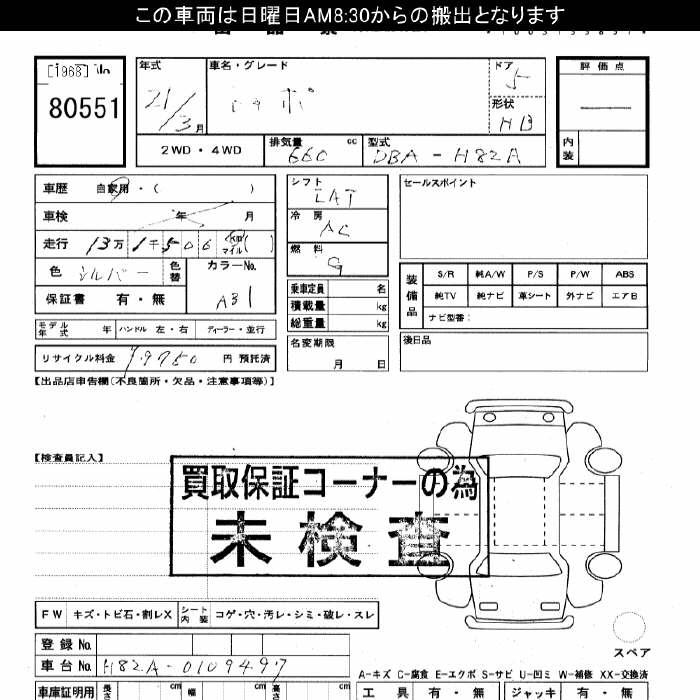 この車両は日曜日AM8:30からの搬出となります
[1968] No
80551
年式
21/3月
車名・グレード
トッポ
ドア
5
形状
HB
評価点
内装
2WD・4WD
排気量 660 cc
型式 DBA-H82A
車歴 自家用・( )
車検 年 月
走行 13万 1千506 km マイル( )
色 シルバー 色替
カラーNo.
A31
保証書 有・無
シフト
LAT
冷房
AC
燃料
G
乗車定員 名
積載量 kg
総重量 kg
セールスポイント
装備品
S/R 純A/W P/S P/W ABS
純TV 純ナビ 革シート 外ナビ エアB
ナビ型番:
モデル年式 年 ハンドル 左・右 ディーラー・並行
リサイクル料金 円 預託済
名変期限
月 日
後日品
【出品店申告欄(不良箇所・欠品・注意事項等)】
【検査員記入】
買取保証コーナーの為
未検査
FW キズ・トビ石・割レX シート内装 コゲ・穴・汚レ・シミ・破レ・スレ
登録No.
車台No. H82A-0109497
スペア
車庫証明用 長さ cm 幅 cm 高さ cm
A-キズ C-腐食 E-エクボ S-サビ U-凹ミ W-補修 XX-交換済
工具 有・無 ジャッキ 有・無